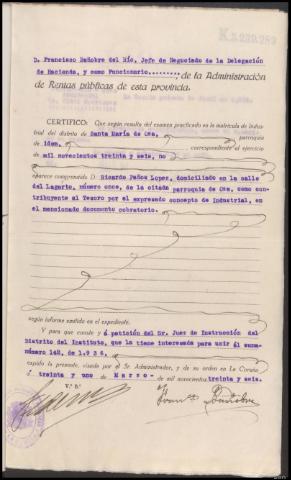 K.3.239.289
D. Francisco Bañobre del Río, Jefe de Negociado de la Delegación
de Hacienda, y como Funcionario........, de la Administración
de Rentas públicas de esta provincia.
CERTIFICO: Que según resulta del examen practicado en la matrícula de Indus-
trial del distrito de Santa María de Oza, parroquia
de idem. correspondiente al ejercicio
de mil novecientos treinta y seis, no
aparece comprendido D. Ricardo Paños Lopez, domiciliado en la calle
del Lagarto, número once, de la citada parroquia de Oza, como con-
tribuyente al Tesoro por el expresado concepto de Industrial, en
el mencionado documento cobratorio.
según informe emitido en el expediente.
Y para que conste y á petición del Sr. Juez de Instrucción del
Distrito del Instituto, que la tiene interesada para unir ál suma-
número 142, de 1.936,
expido la presente, visada por el Sr. Administrador, y de su orden en La Coruña
á treinta y uno de Marzo- de mil novecientos treinta y seis.
V.º B.º
Franco Bañobre